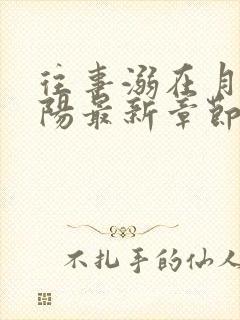 往事溺在月
陽最新章節
不扎手的仙人